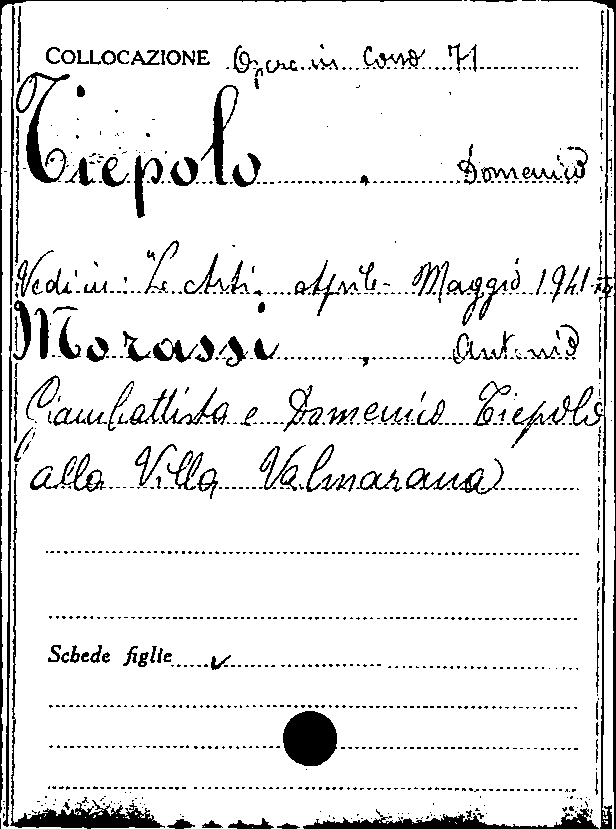 COLLOCAZIONE Opere in Corso 71
Tiepolo , Domenico
Vedi in: "Le Arti, Aprile - Maggio 1941
Morassi , Antonio
Giambattista e Domenico Tiepolo
alla Villa Valmarana
Schede figlie